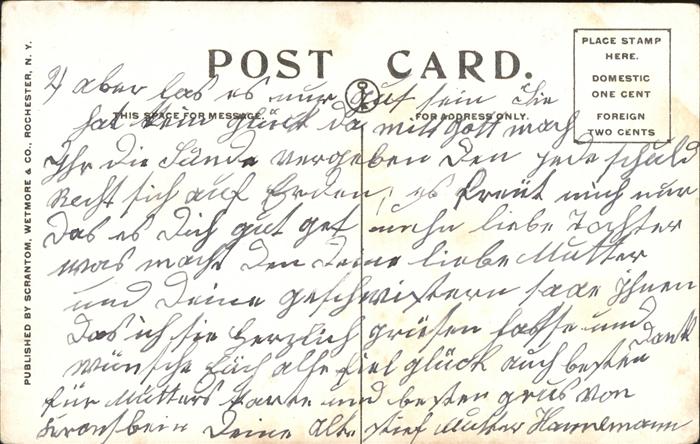 PUBLISHED BY SCRANTOM, WETMORE & CO., ROCHESTER, N. Y.
POST CARD.
PLACE STAMP
HERE.
DOMESTIC
ONE CENT
FOREIGN
TWO CENTS
THIS SPACE FOR MESSAGE.
FOR ADDRESS ONLY.
2) aber las es nur gut sein Sie
hat kein glück da mit Gott mach
Ihr die Sünde vergeben Den jede schuld
Recht sich auf Erden, es freut mich nur
das es Dich gut get mein liebe Tochter
was macht den Deine liebe Mutter
und Deine geschwistern sage ihnen
Das ich sie herzlich grüsen lasse und
wünsche Euch alle viel glück auch besten Dank
für Mutters Karte und besten grus von
Deine Alte Stief Mutter